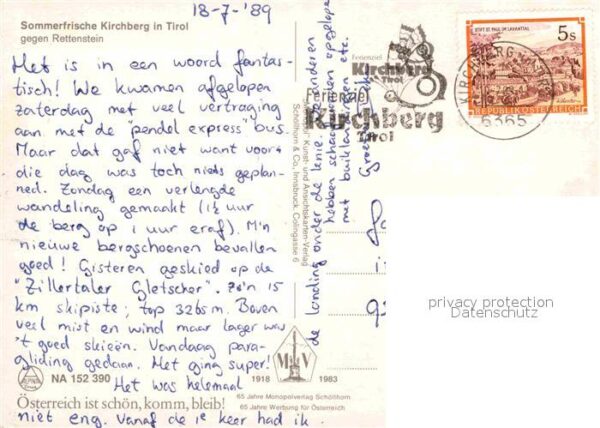 18-7-'89
Sommerfrische Kirchberg in Tirol
gegen Rettenstein
Het is in een woord fantas-
tisch! We kwamen afgelopen
zaterdag met veel vertraging
aan met de "pendel express" bus.
Maar dat gaf niet want voor
die dag was toch niets geplan-
ned. Zondag een verlengde
wandeling gemaakt (1½ uur
de berg op 1 uur eraf). M'n
nieuwe bergschoenen bevallen
goed! Gisteren geskied op de
"Zillertaler Gletscher". Zo'n 15
km skipiste; top 3265m. Boven
veel mist en wind maar lager was
't goed skieën. Vandaag para-
gliding gedaan. Het ging super!
Het was helemaal
niet eng. Vanaf de 1e keer had ik
de landing onder de knie. anderen
hebben schaafwonden opgelopen
met buiklandingen etc.
NA 152 390
Österreich ist schön, komm, bleib!
1918 MV 1983
65 Jahre Monopolverlag Schöllhorn
65 Jahre Werbung für Österreich
Kunst- und Ansichtskarten-Verlag
Schöllhorn & Co., Innsbruck, Colingasse 6
Ferienziel
Kirchberg
TIROL
Ferienziel
Kirchberg
Tirol
STIFT ST. PAUL IM LAVANTTAL
5s
REPUBLIK ÖSTERREICH
KIRCHBERG
6365
privacy protection
Datenschutz